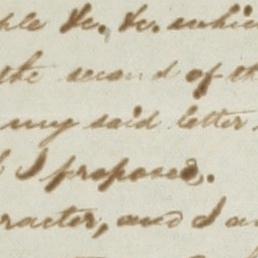 ple &c, &c. which
the second of th
my said letter
I proposed.
racter, and I a